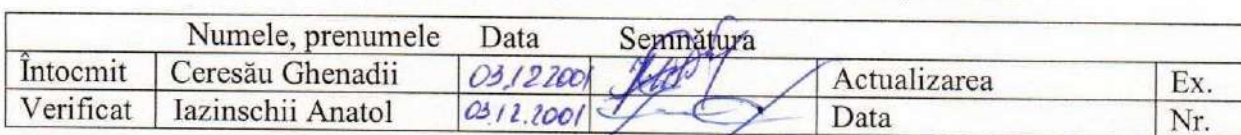 Numele, prenumele Data Semnătura
Întocmit Ceresău Ghenadii 03.12.2001 Actualizarea Ex.
Verificat Iazinschii Anatol 03.12.2001 Data Nr.